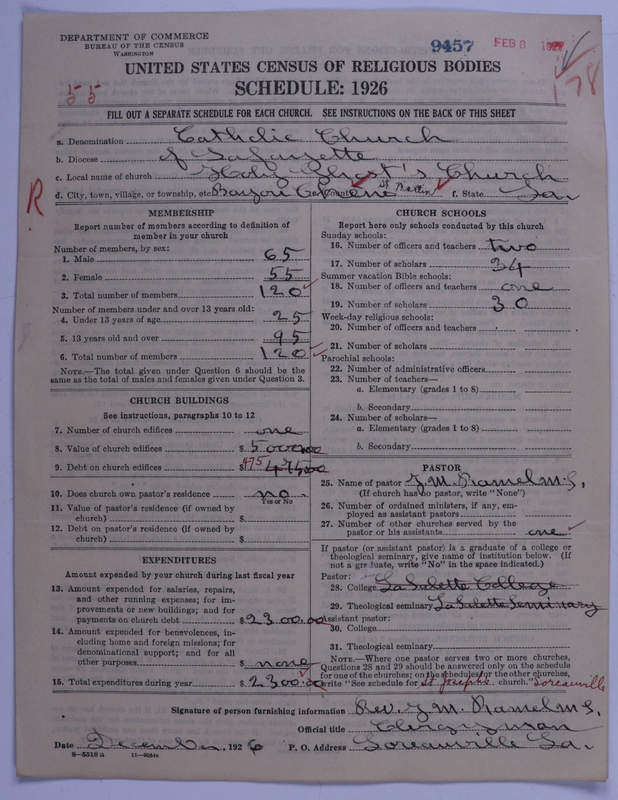 DEPARTMENT OF COMMERCE
BUREAU OF THE CENSUS
WASHINGTON
9457 FEB 8 1927
178
UNITED STATES CENSUS OF RELIGIOUS BODIES
55
SCHEDULE: 1926
FILL OUT A SEPARATE SCHEDULE FOR EACH CHURCH. SEE INSTRUCTIONS ON THE BACK OF THIS SHEET
a. Denomination Catholic Church
b. Diocese of Lafayette
c. Local name of church Holy Ghost's Church
R
d. City, town, village, or township, etc. Bayou Chene County St Martin f. State La.
MEMBERSHIP
Report number of members according to definition of member in your church
Number of members, by sex:
1. Male 65
2. Female 55
3. Total number of members 120
Number of members under and over 13 years old:
4. Under 13 years of age 25
5. 13 years old and over 95
6. Total number of members 120
NOTE.—The total given under Question 6 should be the
same as the total of males and females given under Question 3.
CHURCH BUILDINGS
See instructions, paragraphs 10 to 12
7. Number of church edifices one
8. Value of church edifices $5000.00
9. Debt on church edifices $475 475.00
10. Does church own pastor's residence no.
Yes or No
11. Value of pastor's residence (if owned by
church) $
12. Debt on pastor's residence (if owned by
church) $
EXPENDITURES
Amount expended by your church during last fiscal year
13. Amount expended for salaries, repairs,
and other running expenses; for im-
provements or new buildings; and for
payments on church debt $2300.00
14. Amount expended for benevolences, in-
cluding home and foreign missions; for
denominational support; and for all
other purposes $ none
15. Total expenditures during year $2300.00
CHURCH SCHOOLS
Report here only schools conducted by this church
Sunday schools:
16. Number of officers and teachers two
17. Number of scholars 34
Summer vacation Bible schools:
18. Number of officers and teachers one
19. Number of scholars 30
Week-day religious schools:
20. Number of officers and teachers
21. Number of scholars
Parochial schools:
22. Number of administrative officers
23. Number of teachers—
a. Elementary (grades 1 to 8)
b. Secondary
24. Number of scholars—
a. Elementary (grades 1 to 8)
b. Secondary
PASTOR
25. Name of pastor J. M. Ramel M.S.
(If church has no pastor, write "None")
26. Number of ordained ministers, if any, em-
ployed as assistant pastors
27. Number of other churches served by the
pastor or his assistants one
If pastor (or assistant pastor) is a graduate of a college or
theological seminary, give name of institution below. (If
not a graduate, write "No" in the space indicated.)
Pastor:
28. College La Salette College
29. Theological seminary La Salette Seminary
Assistant pastor:
30. College
31. Theological seminary
NOTE.—Where one pastor serves two or more churches,
Questions 28 and 29 should be answered only on the schedule
for one of the churches; on the schedules for the other churches,
write "See schedule for St Joseph's church." Loreauville
Signature of person furnishing information Rev. J. M. Ramel M.S.
Official title Clergyman
Date December, 1926 P. O. Address Loreauville La.
8—5518a 11—9051a